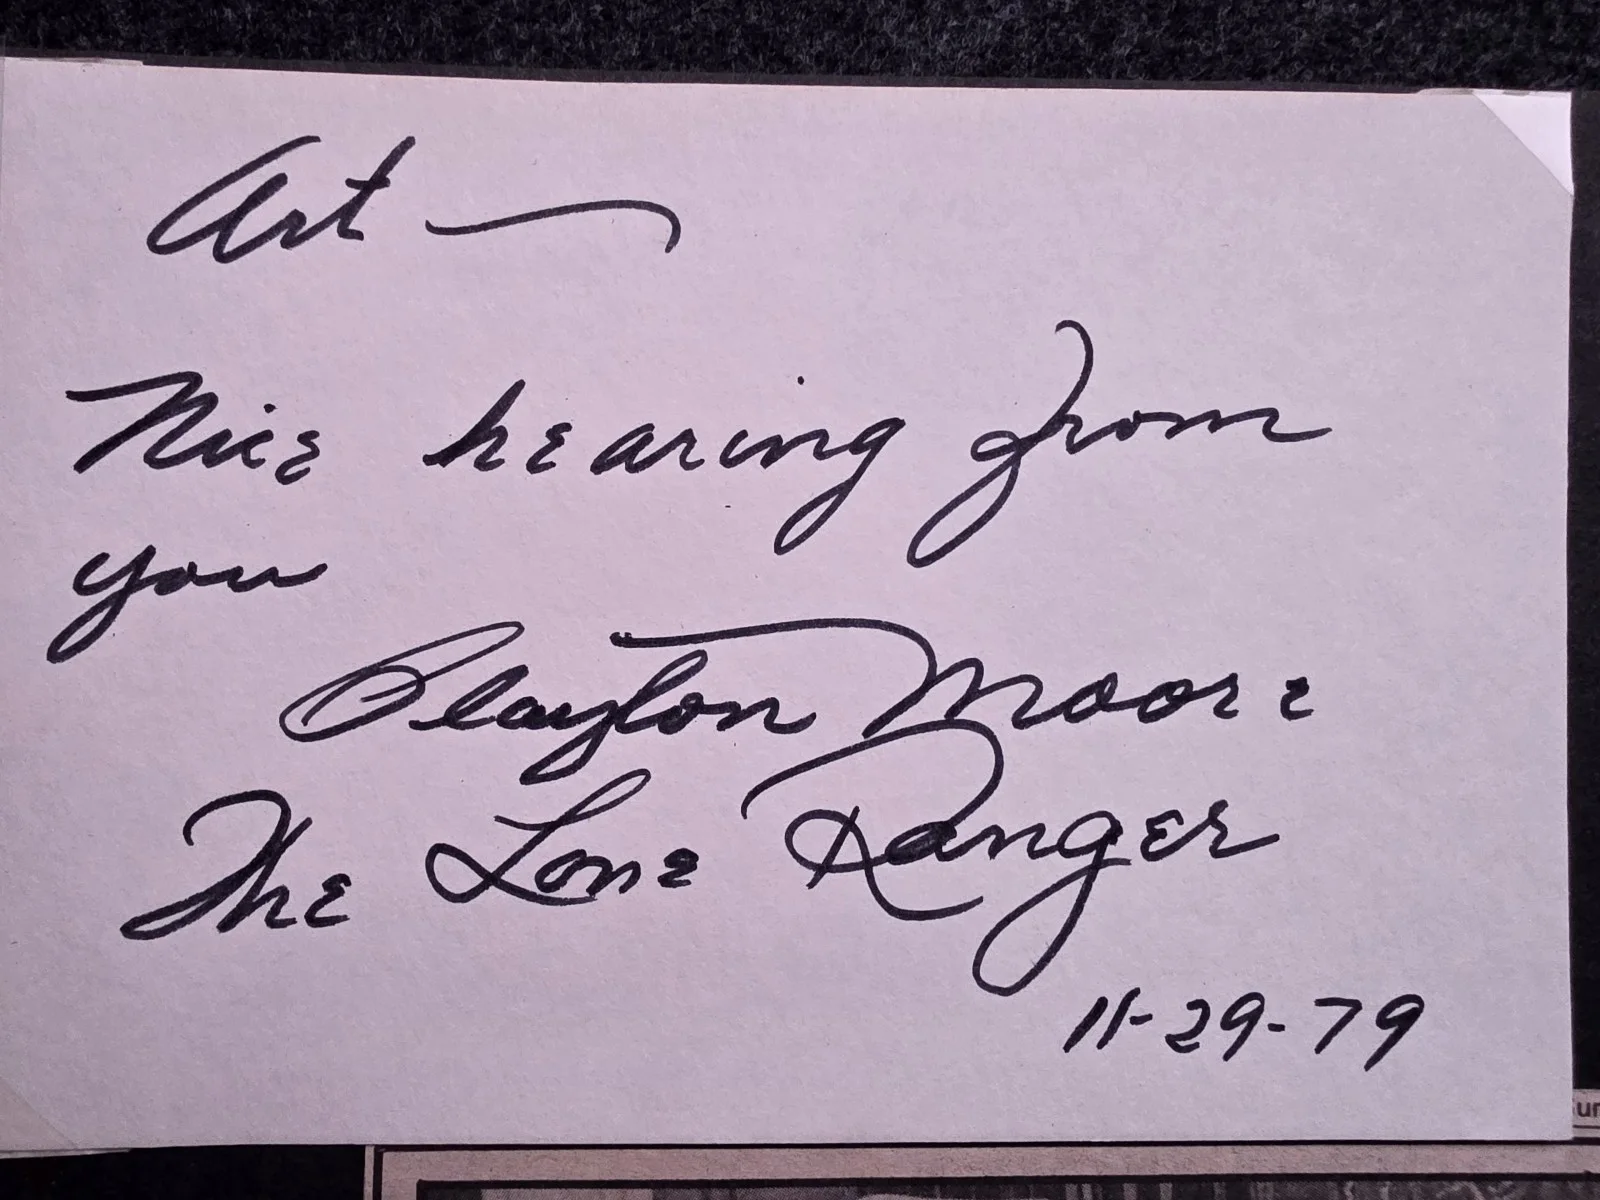 Art —
Nice hearing from
you
Clayton Moore
The Lone Ranger
11-29-79